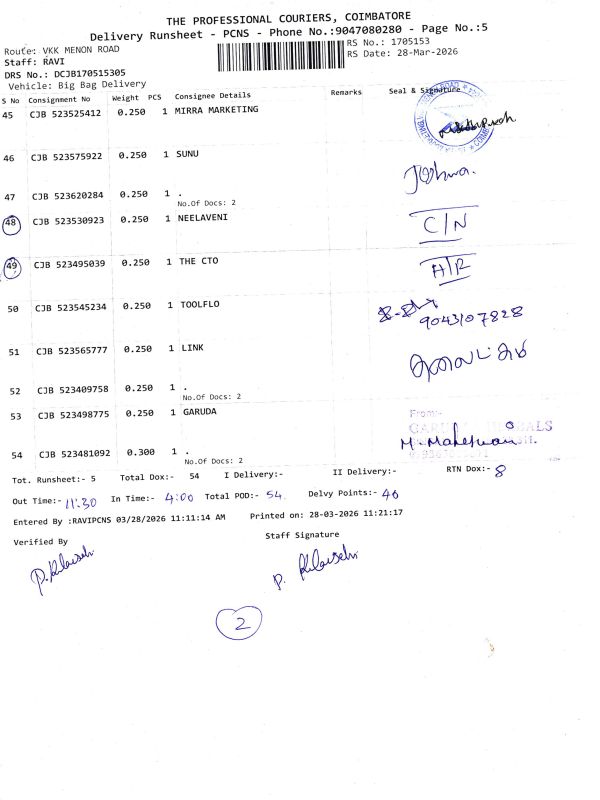 THE PROFESSIONAL COURIERS, COIMBATORE
Delivery Runsheet - PCNS - Phone No.:9047080280 - Page No.:5
Route: VKK MENON ROAD
RS No.: 1705153
Staff: RAVI
RS Date: 28-Mar-2026
DRS No.: DCJB170515305
Vehicle: Big Bag Delivery
S No Consignment No Weight PCS Consignee Details Remarks Seal & Signature
45 CJB 523525412 0.250 1 MIRRA MARKETING
46 CJB 523575922 0.250 1 SUNU
47 CJB 523620284 0.250 1 .
No.Of Docs: 2
48 CJB 523530923 0.250 1 NEELAVENI C/N
49 CJB 523495039 0.250 1 THE CTO
50 CJB 523545234 0.250 1 TOOLFLO 9043107828
51 CJB 523565777 0.250 1 LINK
52 CJB 523409758 0.250 1 .
No.Of Docs: 2
53 CJB 523498775 0.250 1 GARUDA
From:-
54 CJB 523481092 0.300 1 .
No.Of Docs: 2
Tot. Runsheet:- 5 Total Dox:- 54 I Delivery:- II Delivery:- RTN Dox:- 8
Out Time:- 11:30 In Time:- 4:00 Total POD:- 54 Delvy Points:- 46
Entered By :RAVIPCNS 03/28/2026 11:11:14 AM Printed on: 28-03-2026 11:21:17
Verified By Staff Signature
2